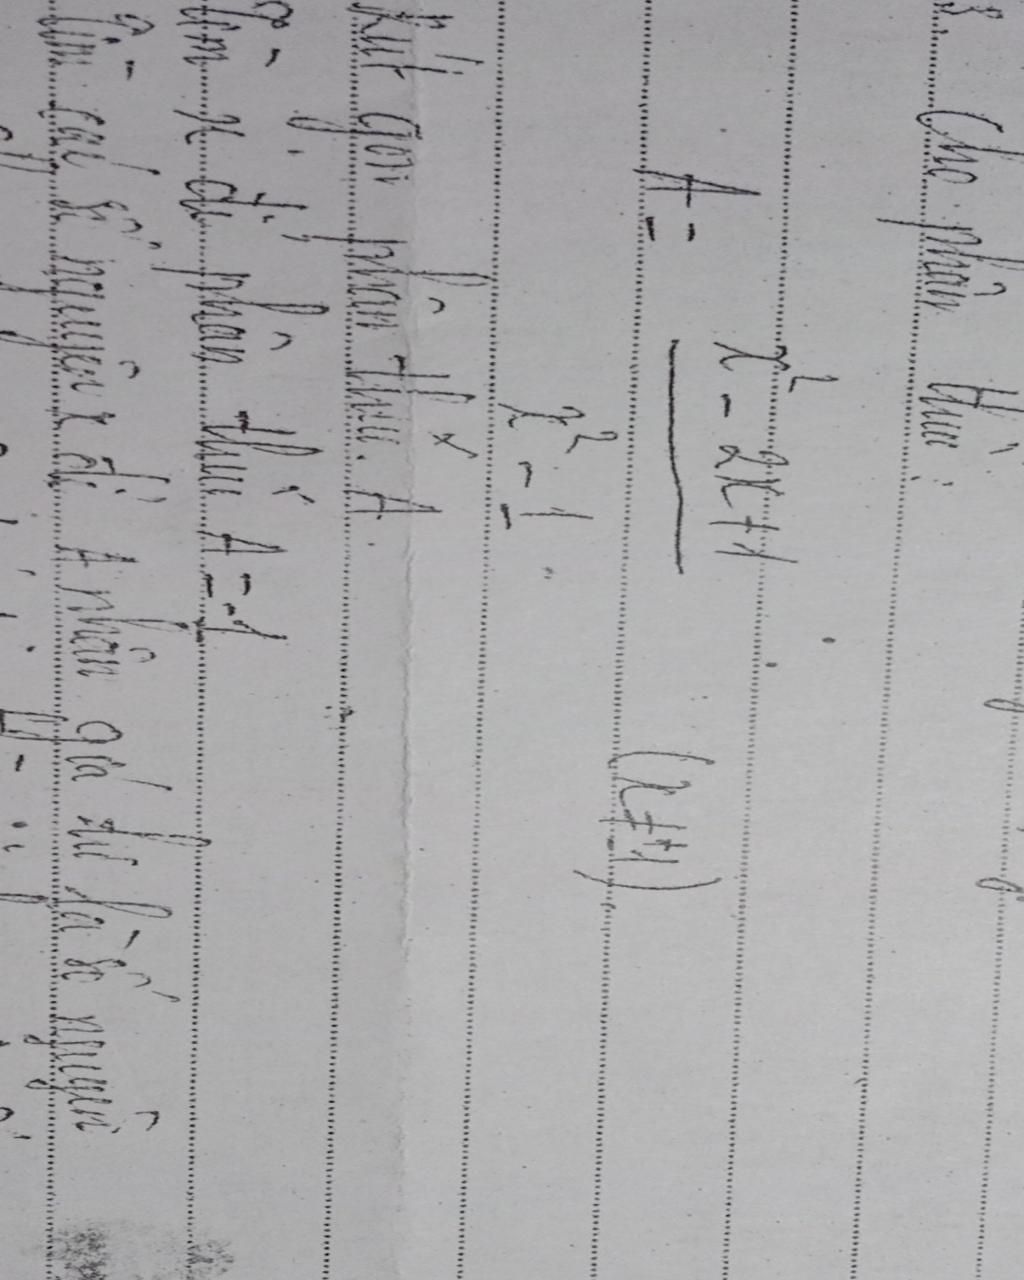 8. Cho phân thức:
x² - 2x+1
A = (x ≠ ±1)
x² - 1
Rút gọn phân thức A
Tìm x để phân thức A = -1
Tìm các số nguyên x để A nhận giá trị là số nguyên